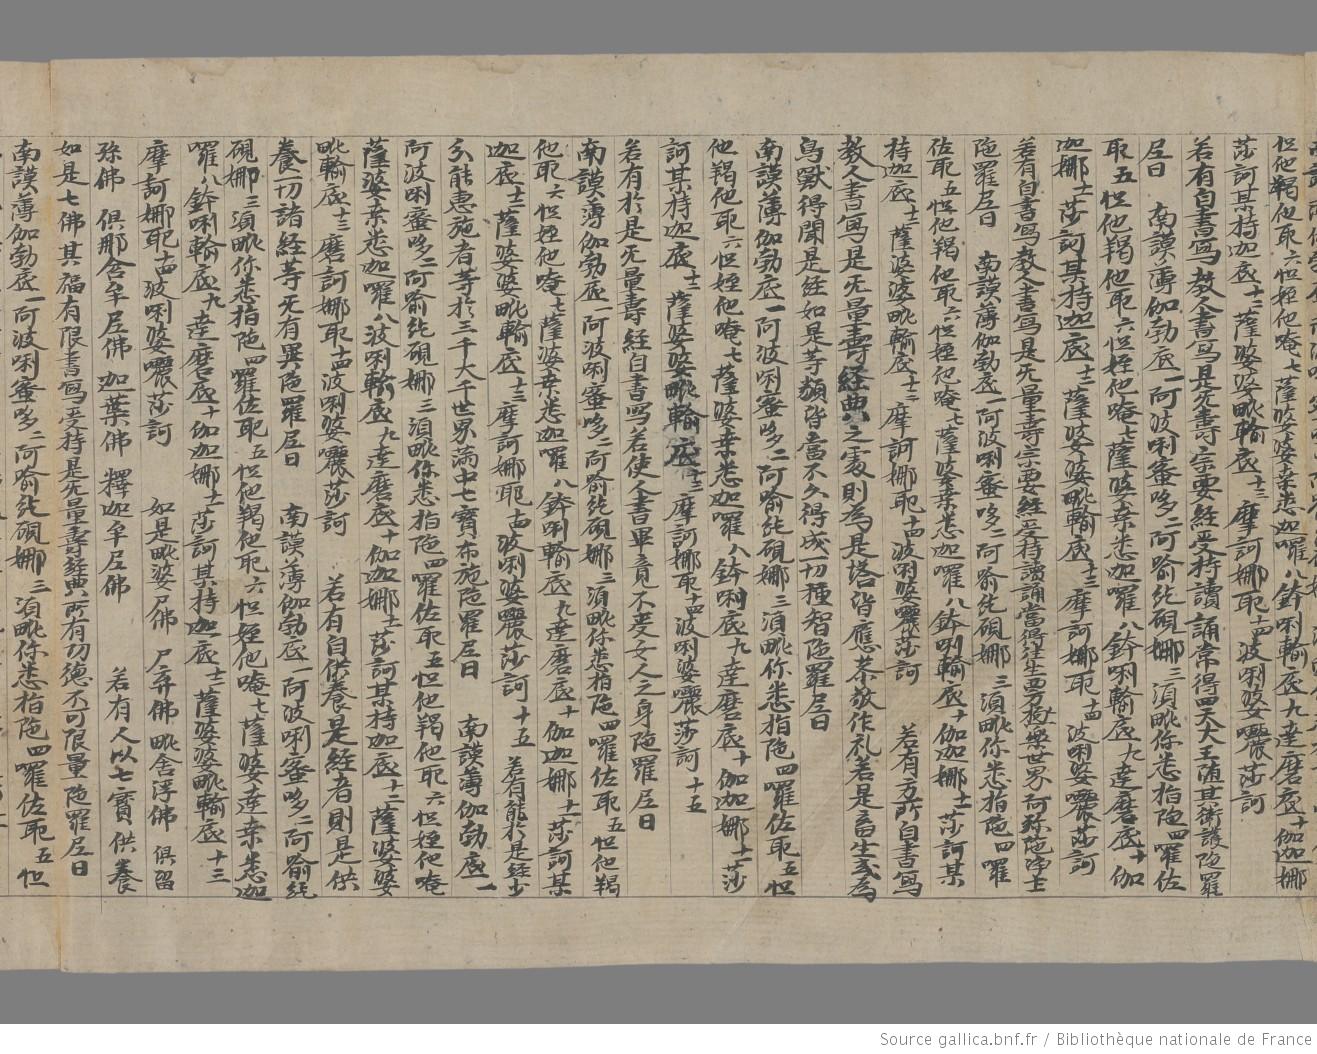 怛他羯他耶六怛姪他唵七薩婆婆桒悉迦囉八鉢唎輸底九達磨底十伽迦娜
莎訶其持迦底十二薩婆婆毗輸底十三摩訶娜耶十四波唎婆㘑莎訶
若有自書寫教人書寫是无量壽宗要經受持讀誦常得四天大王隨其衛護陁羅
尼曰 南謨薄伽勃底一阿波唎蜜哆二阿喻紇硯娜三須毗你悉指陁四囉佐
耶五怛他羯他耶六怛姪他唵七薩婆桒悉迦囉八鉢唎輸底九達磨底十伽
迦娜十一莎訶其持迦底十二薩婆婆毗輸底十三摩訶娜耶十四波唎婆㘑莎訶
若有自書寫教人書寫是无量壽宗要經受持讀誦當得往生西方極樂世界阿弥陁淨土
陁羅尼曰 南謨薄伽勃底一阿波唎蜜哆二阿喻紇硯娜三須毗你悉指陁四囉
佐耶五怛他羯他耶六怛姪他唵七薩婆桒悉迦囉八鉢唎輸底十伽迦娜十一莎訶其
持迦底十二薩婆婆毗輸底十三摩訶娜耶十四波唎婆㘑莎訶 若有方所自書寫
教人書寫是无量壽經典之處則為是塔皆應恭敬作礼若是畜生或為
鳥獸得聞是經如是等類皆當不久得成一切種智陁羅尼曰
南謨薄伽勃底一阿波唎蜜哆二阿喻紇硯娜三須毗你悉指陁四囉佐耶五怛
他羯他耶六怛姪他唵七薩婆桒悉迦囉八鉢唎底九達磨底十伽迦娜十一莎
訶其持迦底十二薩婆婆毗輸底十三摩訶娜耶十四波唎婆㘑莎訶十五
若有於是无量壽經自書寫若使人書畢竟不受女人之身陁羅尼曰
南謨薄伽勃底一阿波唎蜜哆二阿喻紇硯娜三須毗你悉指陁四囉佐耶五怛他羯
他耶六怛姪他唵七薩婆桒悉迦囉八鉢唎輸底九達磨底十伽迦娜十一莎訶其
迦底十二薩婆婆毗輸底十三摩訶娜耶十四波唎婆㘑莎訶十五 若有能於是經少
分能惠施者等於三千大千世界滿中七寶布施陁羅尼曰 南謨薄伽勃底一
阿波唎蜜哆二阿喻紇硯娜三須毗你悉指陁四囉佐耶五怛他羯他耶六怛姪他唵
薩婆桒悉迦囉八波唎輸底九達磨底十伽迦娜十一莎訶其持迦底十二薩婆婆
毗輸底十三磨訶娜耶十四波唎婆㘑莎訶 若有自供養是經者則是供
養一切諸經等无有異陁羅尼曰 南謨薄伽勃底一阿波唎蜜哆二阿喻紇
硯娜三須毗你悉指陁四羅佐耶五怛他羯他耶六怛姪他唵七薩婆達桒悉迦
囉八鉢唎輸底九達磨底十伽迦娜十一莎訶其持迦底十二薩婆婆毗輸底十三
摩訶娜耶十四波唎婆㘑莎訶 如是毗婆尸佛 尸弃佛 毗舍浮佛 俱留
孫佛 俱那含牟尼佛 迦葉佛 釋迦牟尼佛 若有人以七寶供養
如是七佛其福有限書寫受持是无量壽經典所有功德不可限量陁羅尼曰
南謨薄伽勃底一阿波唎蜜哆二阿喻紇硯娜三須毗你悉指陁四囉佐耶五怛
Source gallica.bnf.fr / Bibliothèque nationale de France